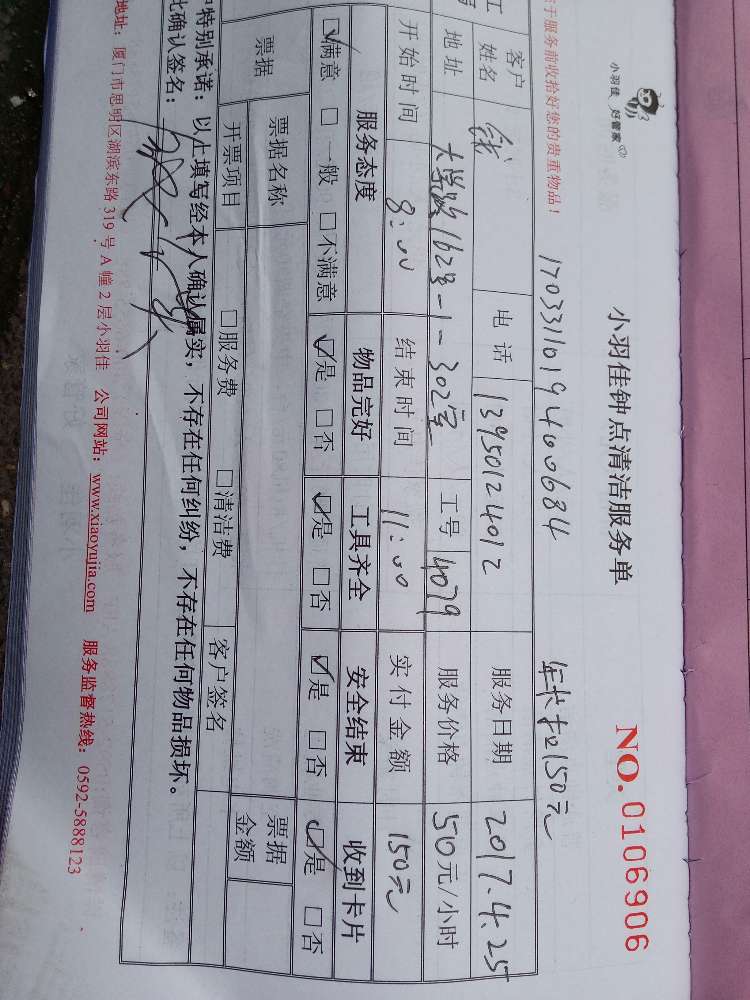 小羽佳 好管家
小羽佳钟点清洁服务单
NO. 0106906
于服务前收拾好您的贵重物品!
17033110194000684
年卡扣150元
客户姓名 钱 电话 13950124012 服务日期 2017.4.25
地址 大学路162号-1-302室 工号 4079 服务价格 50元/小时
开始时间 8:00 结束时间 11:00 实付金额 150元
服务态度 物品完好 工具齐全 安全结束 收到卡片
☑满意 □一般 □不满意 ☑是 □否 ☑是 □否 ☑是 □否 ☑是 □否
票据 票据名称 票据金额
开票项目 □服务费 □清洁费 客户签名
特别承诺:以上填写经本人确认属实,不存在任何纠纷,不存在任何物品损坏。
此确认签名:
地址:厦门市思明区湖滨东路319号A幢2层小羽佳 公司网站:www.xiaoyujia.com 服务监督热线:0592-5888123